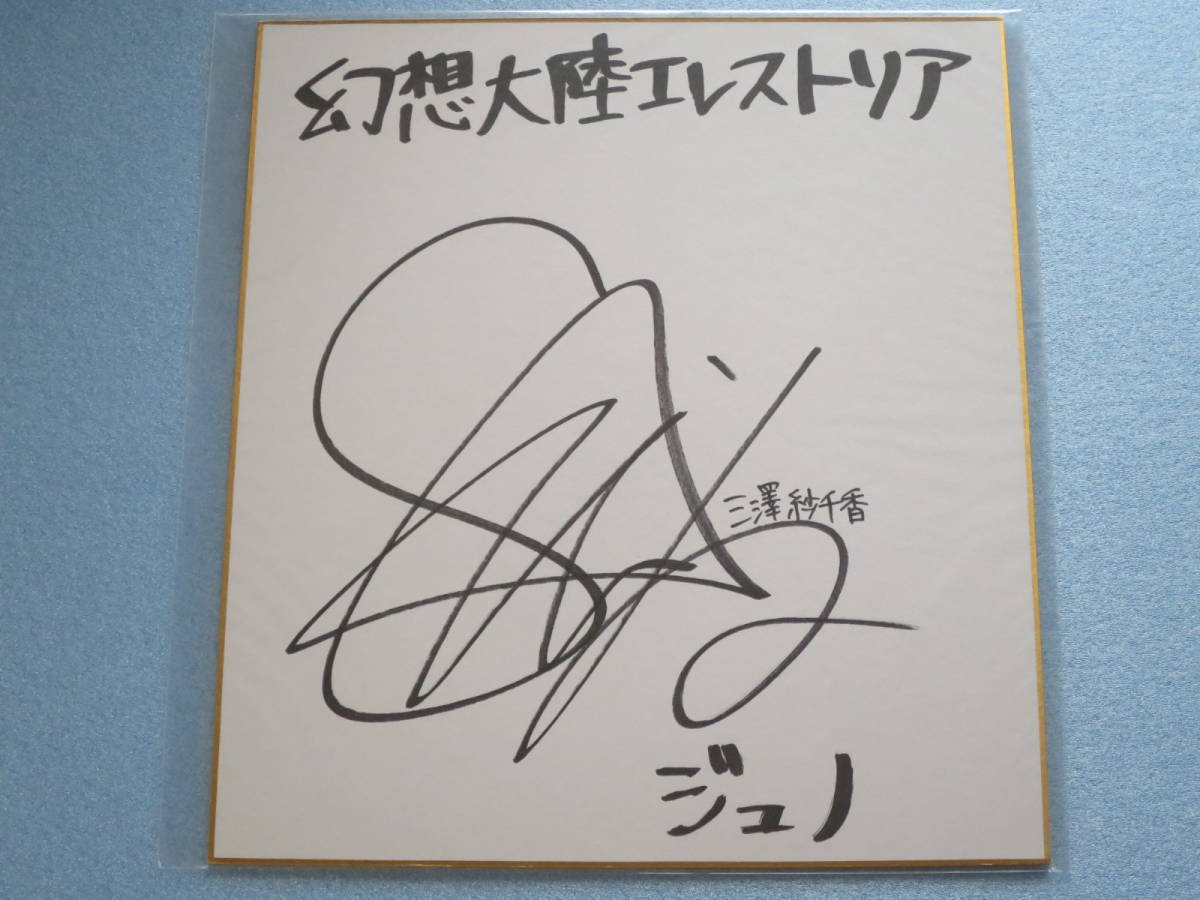 幻想大陸エレストリア
三澤紗千香
ジュノ